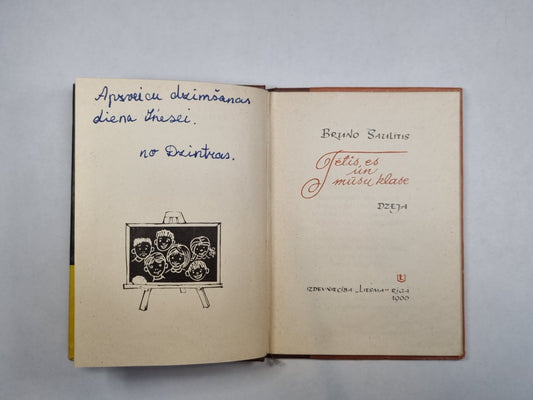 Apsveicu dzimšanas
diena Inesei.
no Dzintras.
BRUNO SAULĪTIS
Tētis, es
un
mūsu klase
DZEJA
IZDEVNIECĪBA „LIESMA" RĪGĀ
1966